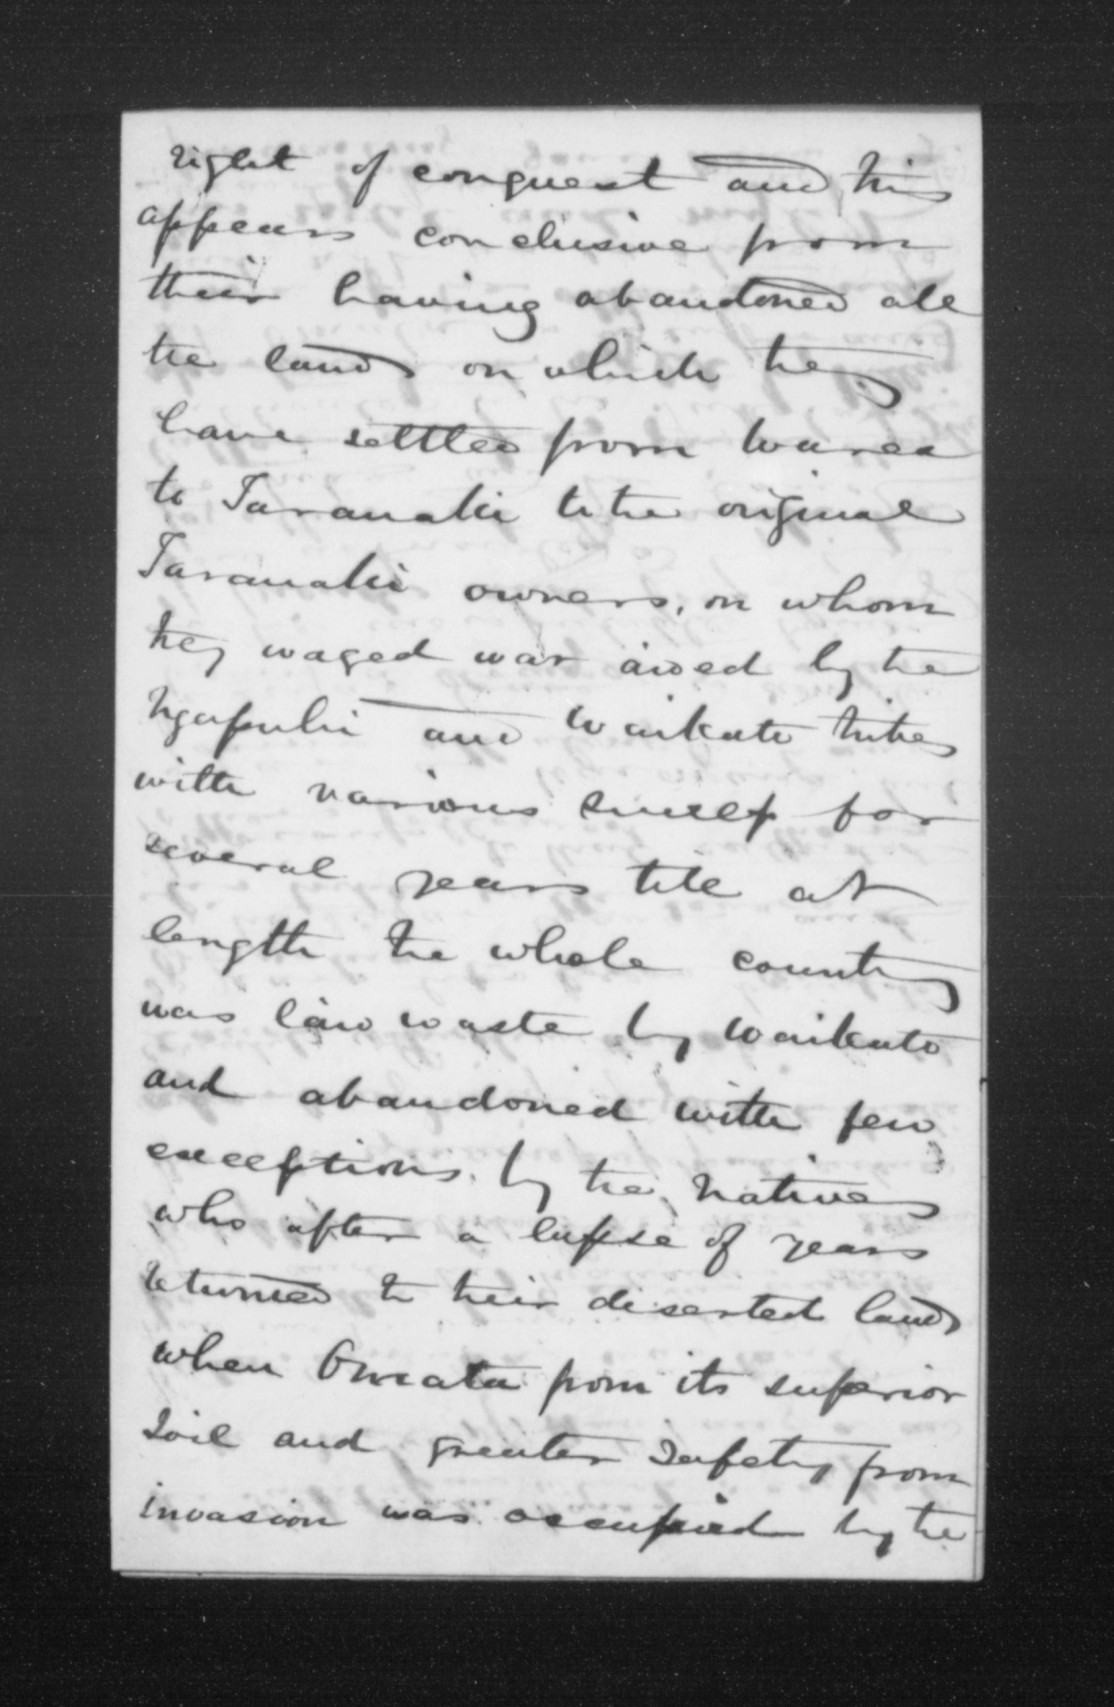 right of conquest and this
appears conclusive from
their having abandoned all
the lands on which they
have settled from Warea
to Taranaki to the original
Taranaki owners, on whom
they waged war aided by the
Ngapuhi and Waikato tribes
with various success for
several years till at
length the whole country
was laid waste by Waikato
and abandoned with few
exceptions by the Natives
who after a lapse of years
returned to their deserted lands
when Omata from its superior
soil and greater safety from
invasion was occupied by the